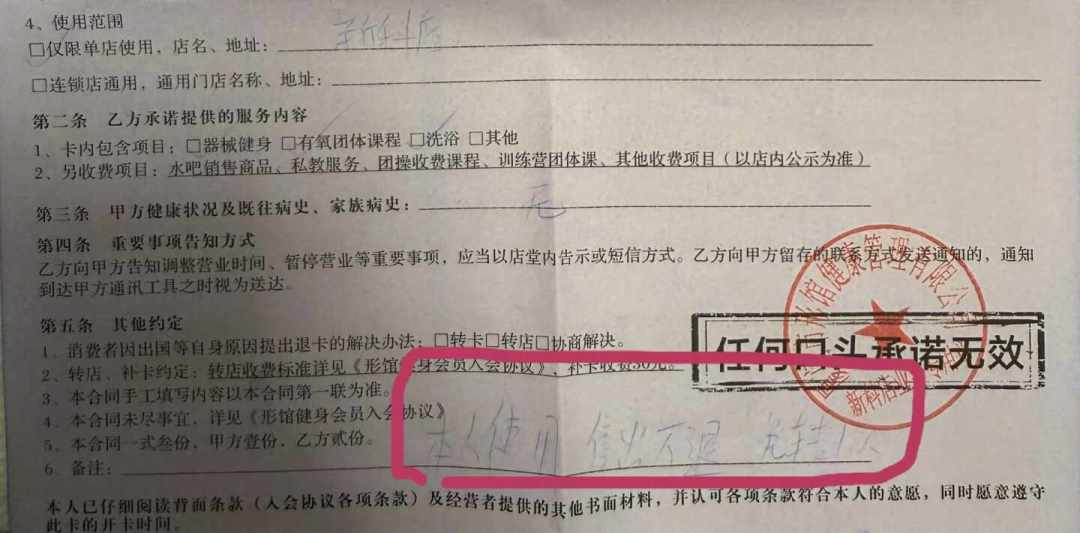 4、使用范围
□仅限单店使用，店名、地址：新科店
□连锁店通用，通用门店名称、地址：
第二条 乙方承诺提供的服务内容
1、卡内包含项目：□器械健身 □有氧团体课程 □洗浴 □其他
2、另收费项目：水吧销售商品、私教服务、团操收费课程、训练营团体课、其他收费项目（以店内公示为准）
第三条 甲方健康状况及既往病史、家族病史：无
第四条 重要事项告知方式
乙方向甲方告知调整营业时间、暂停营业等重要事项，应当以店堂内告示或短信方式。乙方向甲方留存的联系方式发送通知的，通知
到达甲方通讯工具之时视为送达。
第五条 其他约定
1、消费者因出国等自身原因提出退卡的解决办法：□转卡□转店□协商解决。
2、转店、补卡约定：转店收费标准详见《形馆健身会员入会协议》，补卡收费50元。
3、本合同手工填写内容以本合同第一联为准。
4、本合同未尽事宜，详见《形馆健身会员入会协议》
5、本合同一式叁份，甲方壹份，乙方贰份。
6、备注：本人使用 售出不退
本人已仔细阅读背面条款（入会协议各项条款）及经营者提供的其他书面材料，并认可各项条款符合本人的意愿，同时愿意遵守
此卡的开卡时间。
任何口头承诺无效
馆健康管理有限公司
新科店